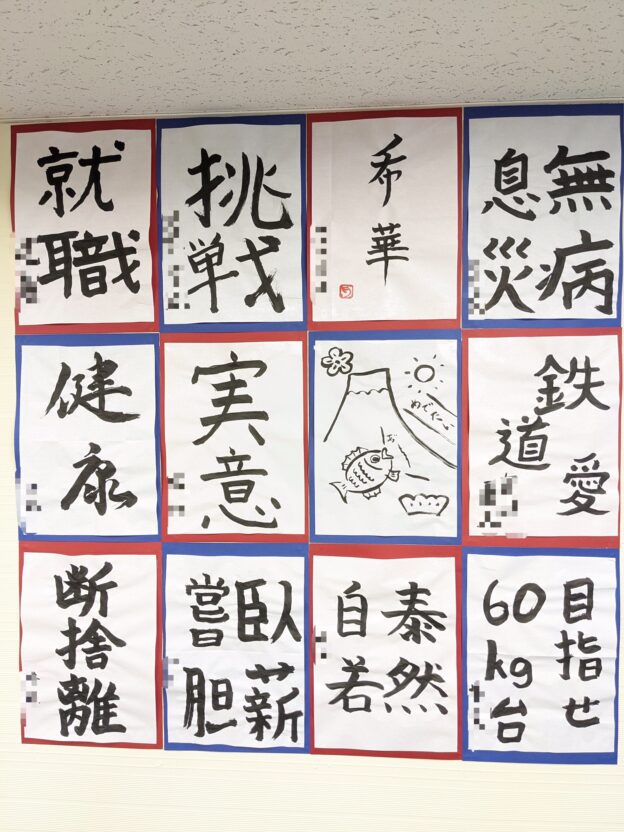 就職
挑戦
希華
無病
息災
健康
実意
めでたい
お
鉄
道
愛
断捨離
臥薪
嘗胆
泰然
自若
目指せ
60
kg
台